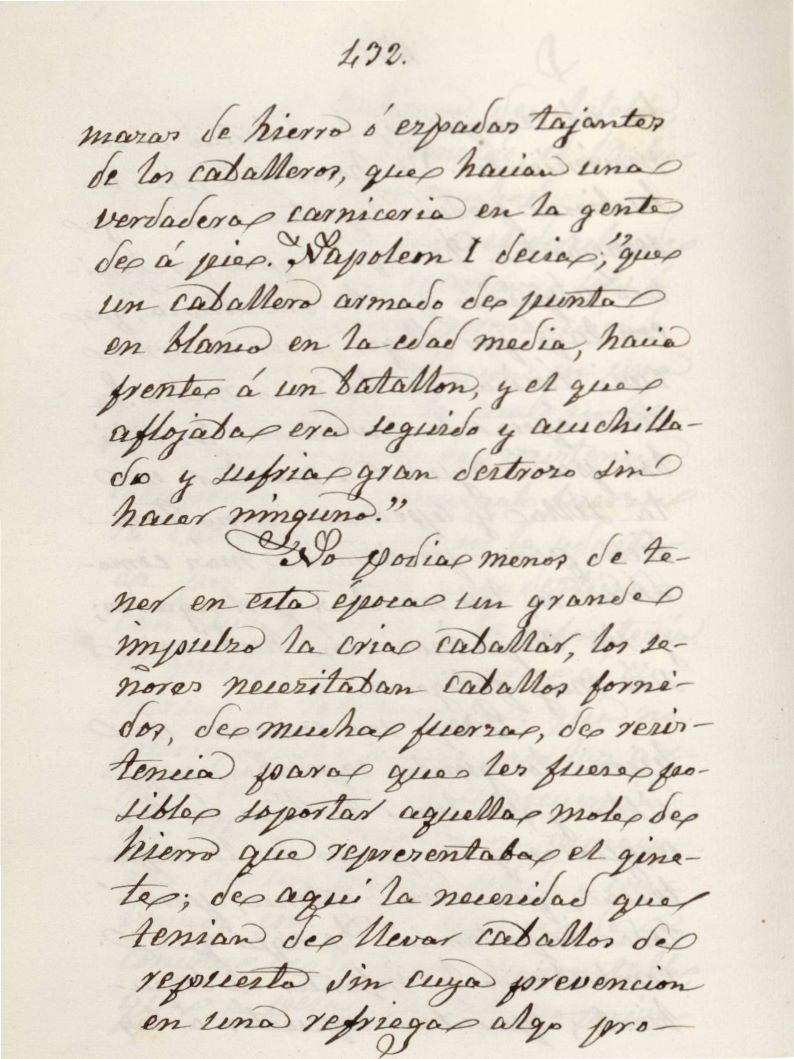 432.
mazas de hierro ó ezpadas tajantes
de los caballeros, que hacian una
verdadera carniceria en la gente
de á pie. Napoleon I decia; "que
un caballero armado de punta
en blanco en la edad media, hacia
frente á un batallon, y el que
aflojaba era seguido y acuchilla-
do y sufria gran destrozo sin
hacer ninguno."
No podia menos de te-
ner en esta época un grande
impulzo la cria caballar, los se-
ñores necezitaban caballos forni-
dos, de mucha fuerza, de rezis-
tencia para que les fuese po-
sible soportar aquella mole de
hierro que reprezentaba el gine-
te; de aqui la necezidad que
tenian de llevar caballos de
repuesto sin cuya prevencion
en una refriega algo pro-